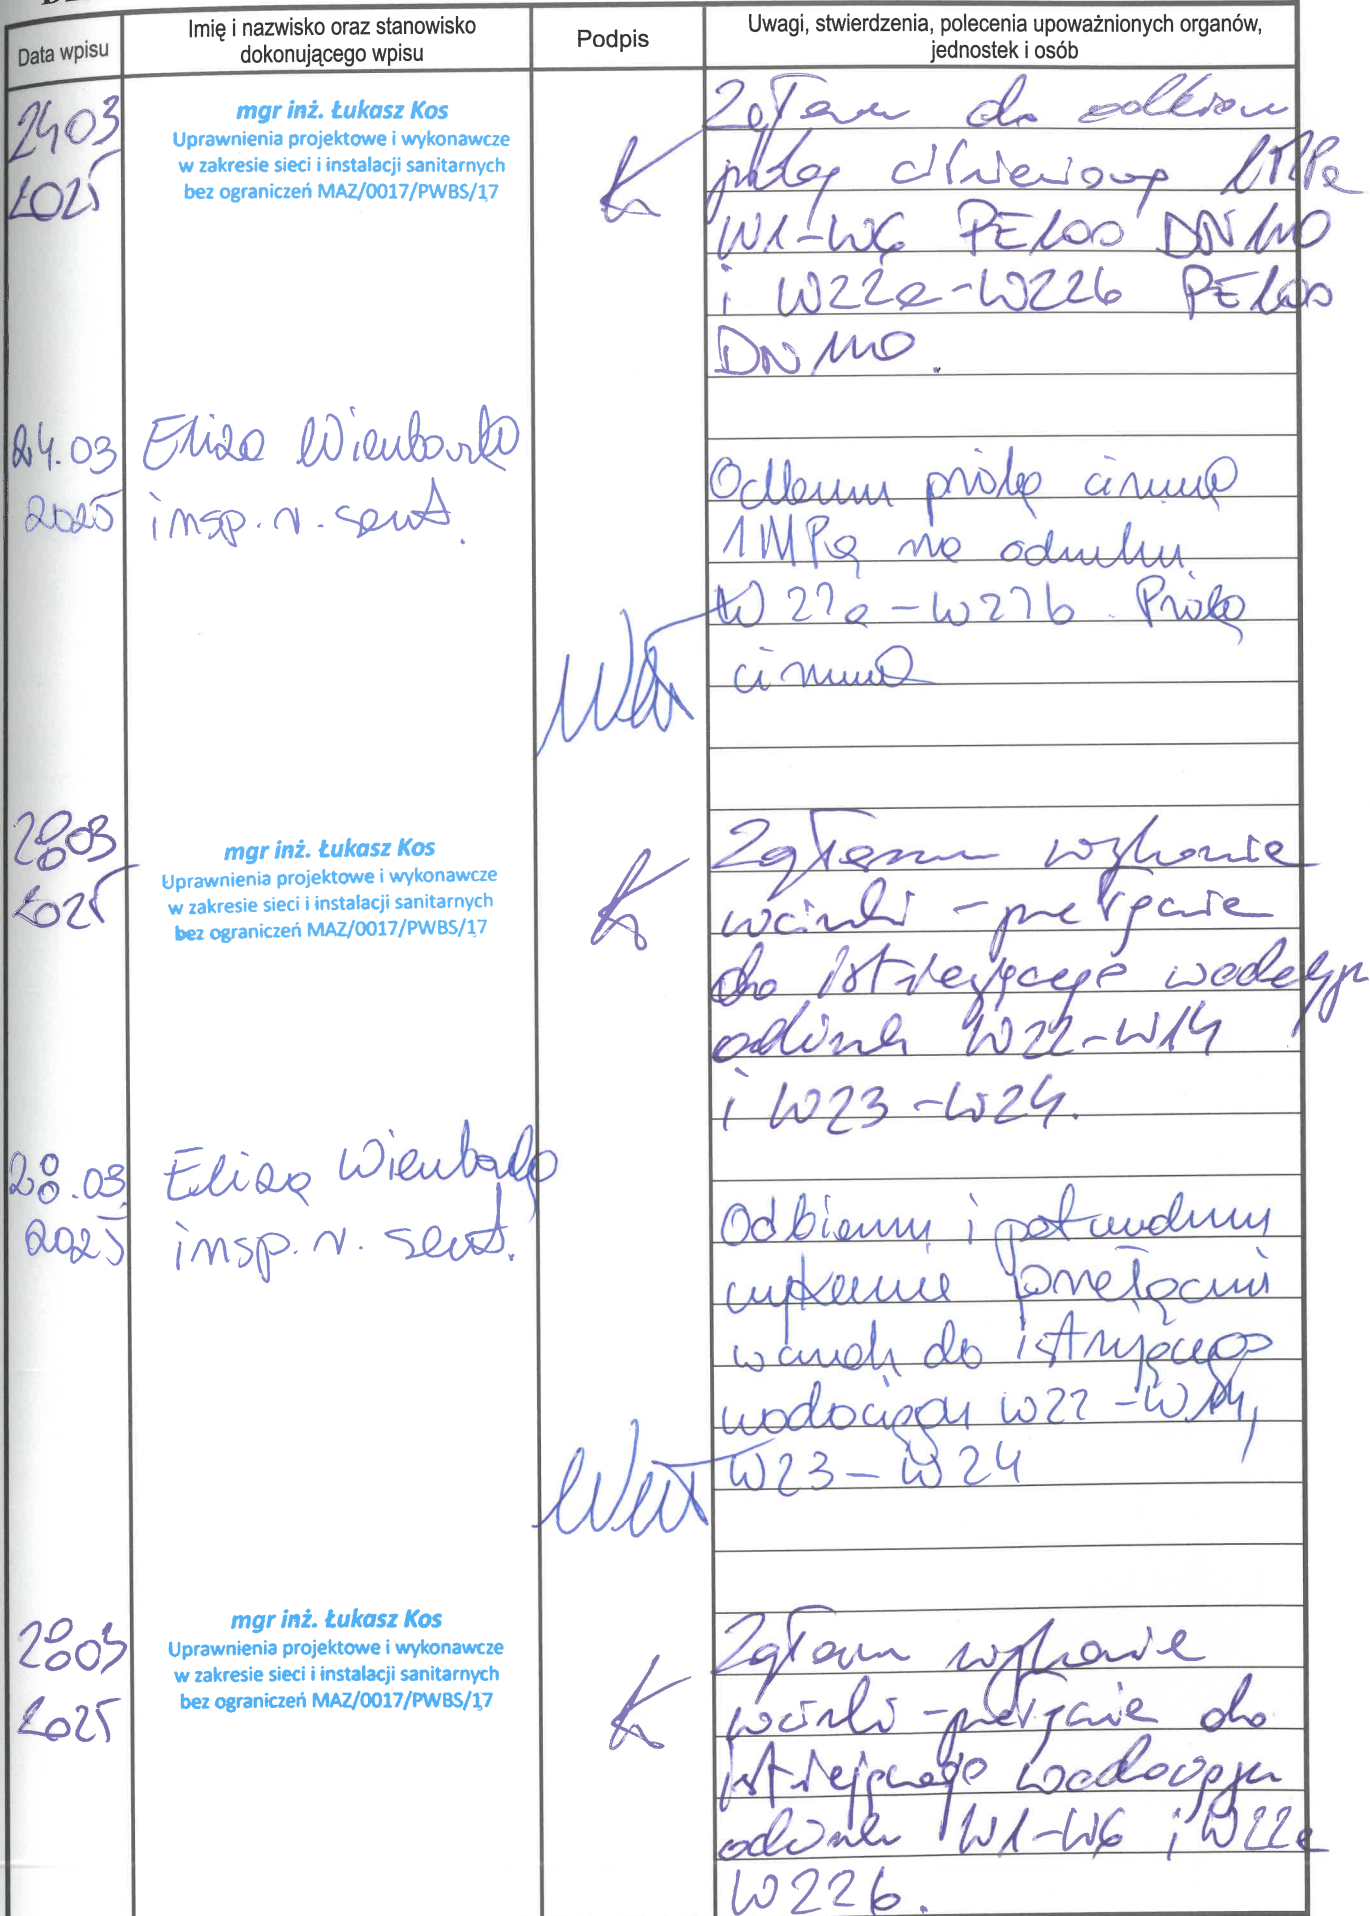 Data wpisu
Imię i nazwisko oraz stanowisko
dokonującego wpisu
Podpis
Uwagi, stwierdzenia, polecenia upoważnionych organów,
jednostek i osób
2403
2025
mgr inż. Łukasz Kos
Uprawnienia projektowe i wykonawcze
w zakresie sieci i instalacji sanitarnych
bez ograniczeń MAZ/0017/PWBS/17
do
1MPa
W1-W6 PE100 DN110
i W22a-W22b PE100
DN110.
24.03
2025
Eliza
insp. n. sanit.
próbę
1MPa na odcinku
W22a-W22b. Próba
2803
2025
mgr inż. Łukasz Kos
Uprawnienia projektowe i wykonawcze
w zakresie sieci i instalacji sanitarnych
bez ograniczeń MAZ/0017/PWBS/17
Zgłaszam wykonanie
wcinki - przełączenie
do istniejącego wodociągu
odcinek W22-W14
i W23-W24.
28.03
2025
Eliza
insp. n. sanit.
Odbieram i potwierdzam
wykonanie przełączenia
do istniejącego
wodociągu W22-W14,
W23-W24
2803
2025
mgr inż. Łukasz Kos
Uprawnienia projektowe i wykonawcze
w zakresie sieci i instalacji sanitarnych
bez ograniczeń MAZ/0017/PWBS/17
Zgłaszam wykonanie
wcinki - przełączenie do
istniejącego wodociągu
odcinek W1-W6 i W22a
W22b.